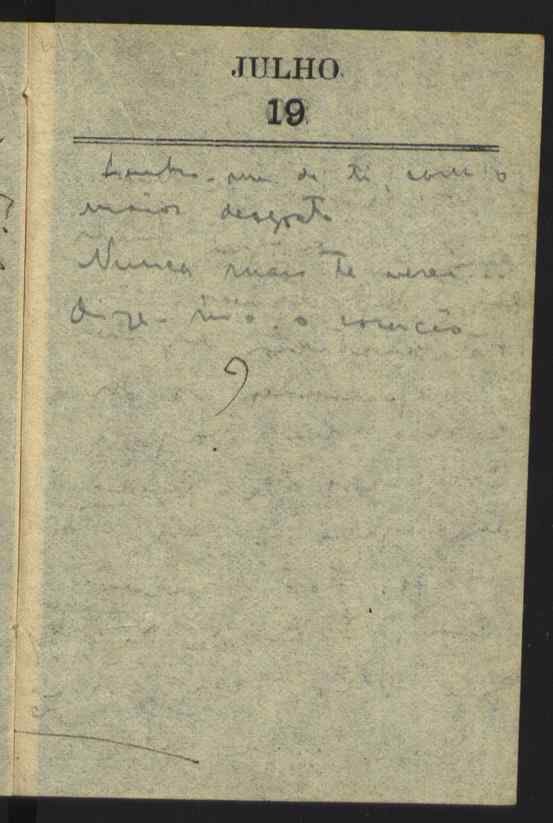 JULHO
19
Lembro-me de ti, com o
maior desgosto
Nunca mais te verei...
Dize-mo o coração